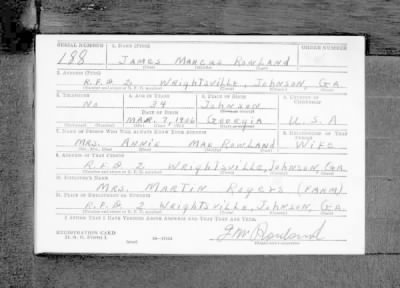 SERIAL NUMBER 1. NAME (Print) ORDER NUMBER
188 JAMES MARCUS ROWLAND
(First) (Middle) (Last)
2. ADDRESS (Print)
R.F.D 2 WRIGHTSVILLE, JOHNSON, GA
3. TELEPHONE 4. AGE IN YEARS 5. PLACE OF BIRTH 6. COUNTRY OF CITIZENSHIP
No 34 JOHNSON
DATE OF BIRTH
MAR. 7, 1906 GEORGIA U.S.A
7. NAME OF PERSON WHO WILL ALWAYS KNOW YOUR ADDRESS 8. RELATIONSHIP OF THAT PERSON
MRS. ANNIE MAE ROWLAND WIFE
9. ADDRESS OF THAT PERSON
R.F.D 2 WRIGHTSVILLE, JOHNSON, GA
10. EMPLOYER'S NAME
MRS. MARTIN ROGERS (FARM)
11. PLACE OF EMPLOYMENT OR BUSINESS
R.F.D 2 WRIGHTSVILLE, JOHNSON, GA
I AFFIRM THAT I HAVE VERIFIED ABOVE ANSWERS AND THAT THEY ARE TRUE.
REGISTRATION CARD
D. S. S. Form 1
J M Rowland